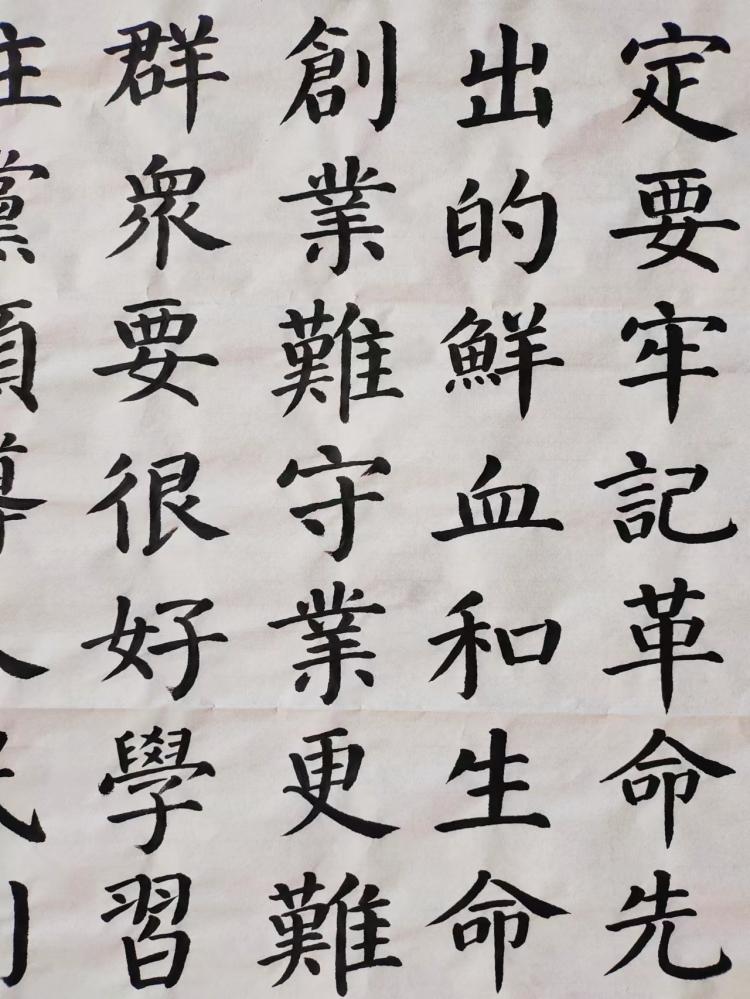 定要牢記革命先
出的鮮血和生命
創業難守業更難
群衆要很好學習